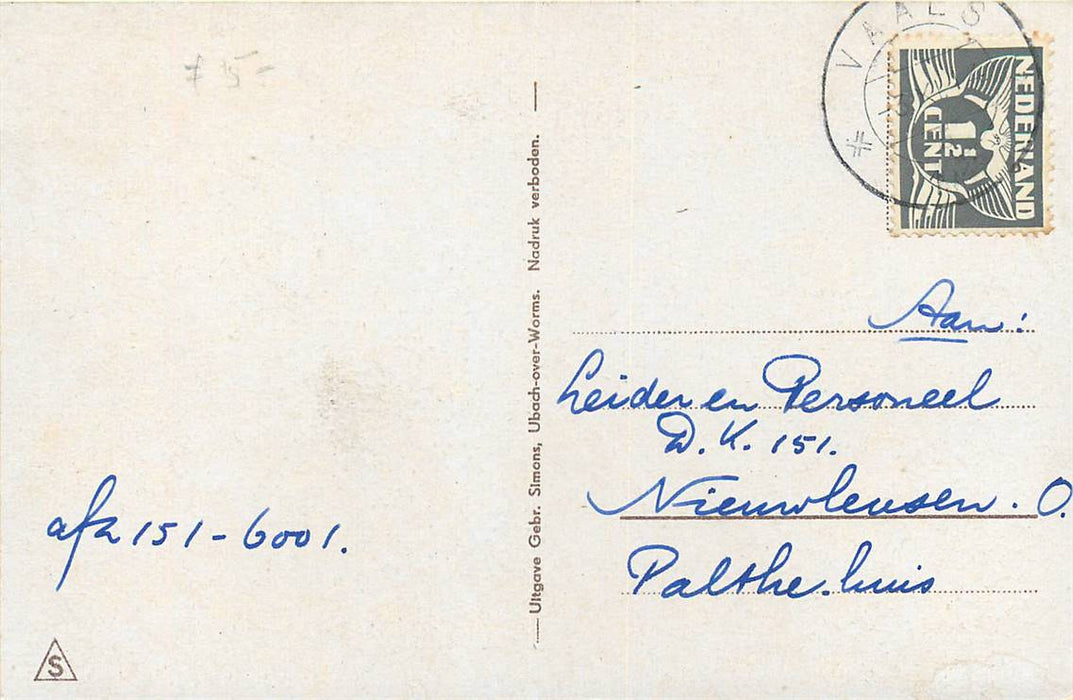 7 5-
VAALS
NEDERLAND
1½
CENT
Uitgave Gebr. Simons, Ubach-over-Worms. Nadruk verboden.
Aan:
Leider en Personeel
D.K. 151.
Nieuwleusen. O.
Palthe.huis
afz 151-6001.
S